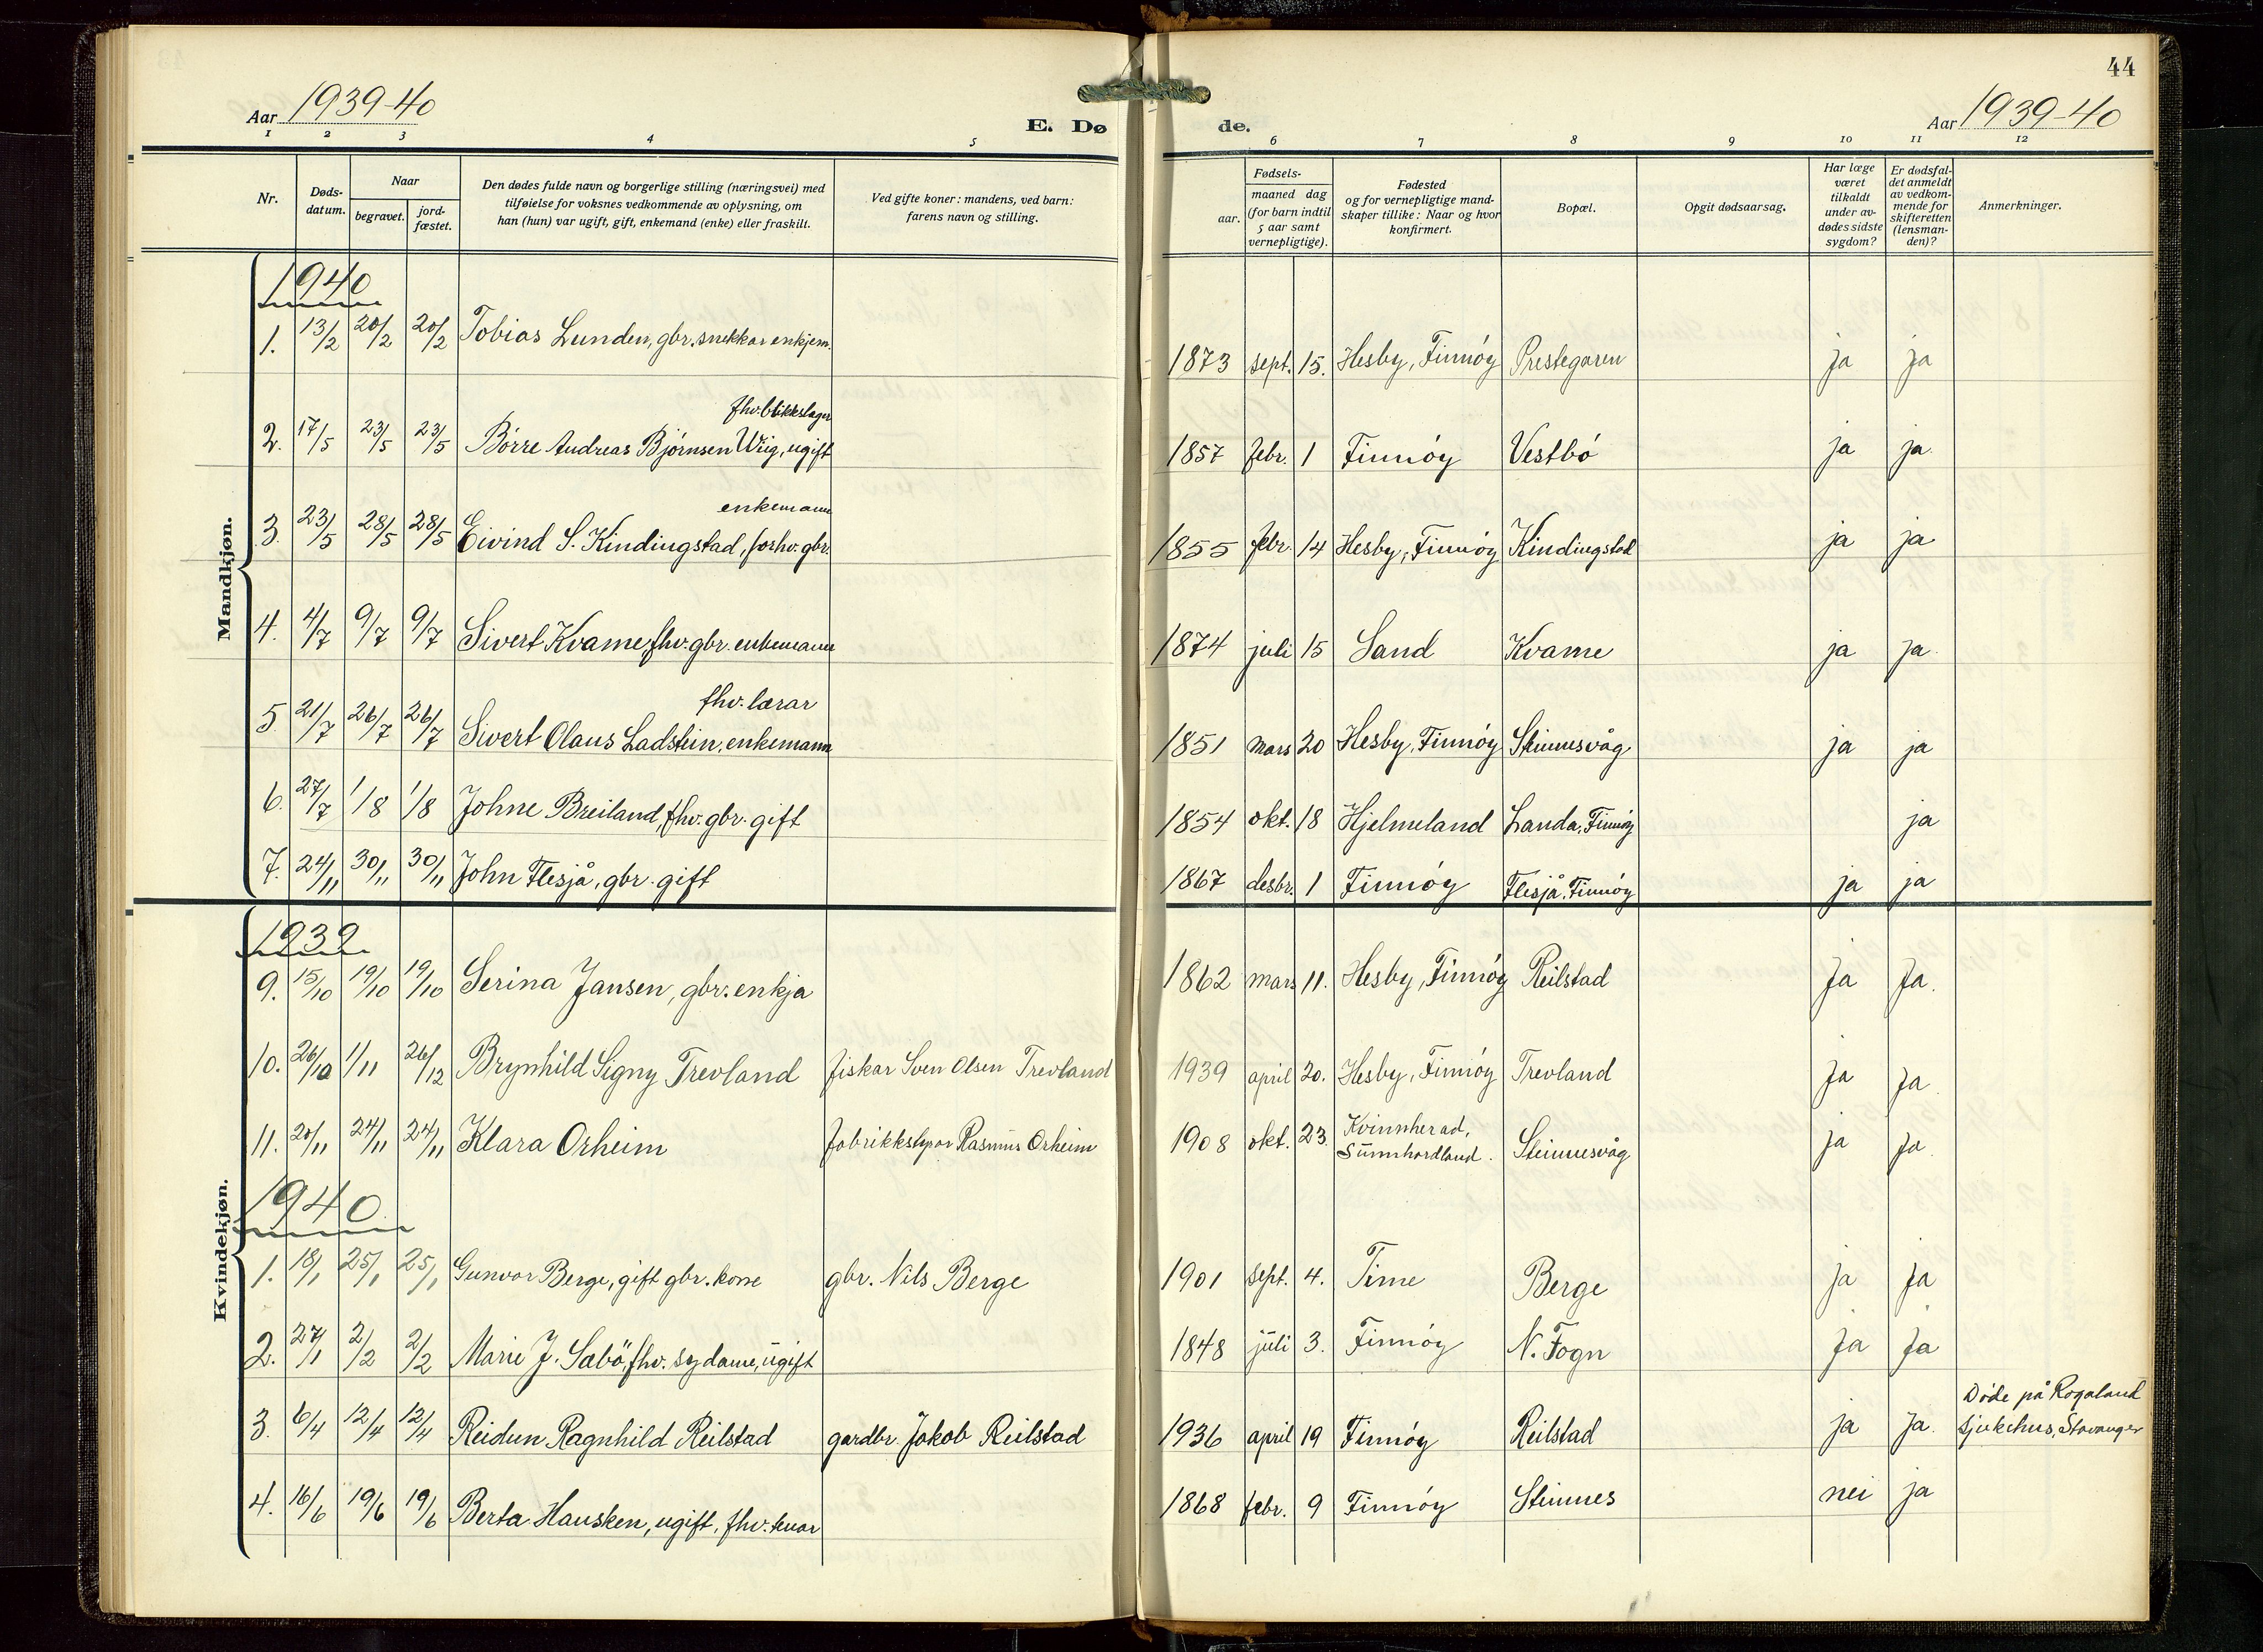 44
Aar 1939-40
E. Dø de.
Aar 1939-40
1 2 3 4 5 6 7 8 9 10 11 12
Nr.
Døds-
datum.
Naar
begravet.
jord-
fæstet.
Den dødes fulde navn og borgerlige stilling (næringsvei) med
tilføielse for voksnes vedkommende av oplysning, om
han (hun) var ugift, gift, enkemand (enke) eller fraskilt.
Ved gifte koner: mandens, ved barn:
farens navn og stilling.
Fødsels-
aar.
maaned dag
(for barn indtil
5 aar samt
vernepligtige).
Fødested
og for vernepligtige mand-
skaper tillike: Naar og hvor
konfirmert.
Bopæl.
Opgit dødsaarsag.
Har læge
været
tilkaldt
under av-
dødes sidste
sygdom?
Er dødsfal-
det anmeldt
av vedkom-
mende for
skifteretten
(lensman-
den)?
Anmerkninger.
Mandkjøn.
1940
1. 13/2 20/2 20/2 Tobias Lunden, gbr. snekkar enkjem. 1873 sept. 15. Hesby, Finnöy Prestegaren ja ja
fhv. blikkslager
2. 17/5 23/5 23/5 Börre Andreas Björnsen Wiig, ugift 1857 febr. 1 Finnöy Vestbö ja ja
enkemann
3. 23/5 28/5 28/5 Eivind S. Kindingstad, forhv. gbr. 1855 febr. 14 Hesby, Finnöy Kindingstad ja ja
4. 4/7 9/7 9/7 Sivert Kvame, fhv. gbr. enkemann 1874 juli 15 Sand Kvame ja ja
fhv. lærar
5 21/7 26/7 26/7 Sivert Olaus Ladstein, enkemann 1851 mars 20 Hesby, Finnöy Steinnesvåg ja ja
6. 27/7 1/8 1/8 Johne Breiland, fhv. gbr. gift 1854 okt. 18 Hjelmeland Landa, Finnöy ja
7. 24/11 30/11 30/11 John Flesjå, gbr. gift 1867 desbr. 1 Finnöy Flesjå, Finnöy ja ja
Kvindekjøn.
1939
9. 15/10 19/10 19/10 Serina Jansen, gbr. enkja 1862 mars 11. Hesby, Finnöy Reilstad Ja Ja.
10. 26/10 1/11 26/12 Brynhild Signy Trevland fiskar Sven Olsen Trevland 1939 april 20. Hesby, Finnöy Trevland Ja Ja.
11. 20/11 24/11 24/11 Klara Orheim fabrikkstyrar Rasmus Orheim 1908 okt. 23. Kvinnherad,
Sunnhordland. Steinnesvåg ja Ja
1940
1. 18/1 25/1 25/1 Gunvor Berge, gift gbr. kone gbr. Nils Berge 1901 sept. 4. Time Berge ja ja
2. 27/1 2/2 2/2 Marie J. Sæbö, fhv. sydame, ugift 1848 juli 3. Finnöy N. Fogn Ja Ja
3. 6/4 12/4 12/4 Reidun Ragnhild Reilstad gardbr. Jakob Reilstad 1936 april 19 Finnöy Reilstad ja Ja. Døde på Rogaland
sjukehus, Stavanger
4. 16/6 19/6 19/6 Berta Hausken, ugift, fhv. 1868 febr. 9 Finnöy Steinnes nei ja